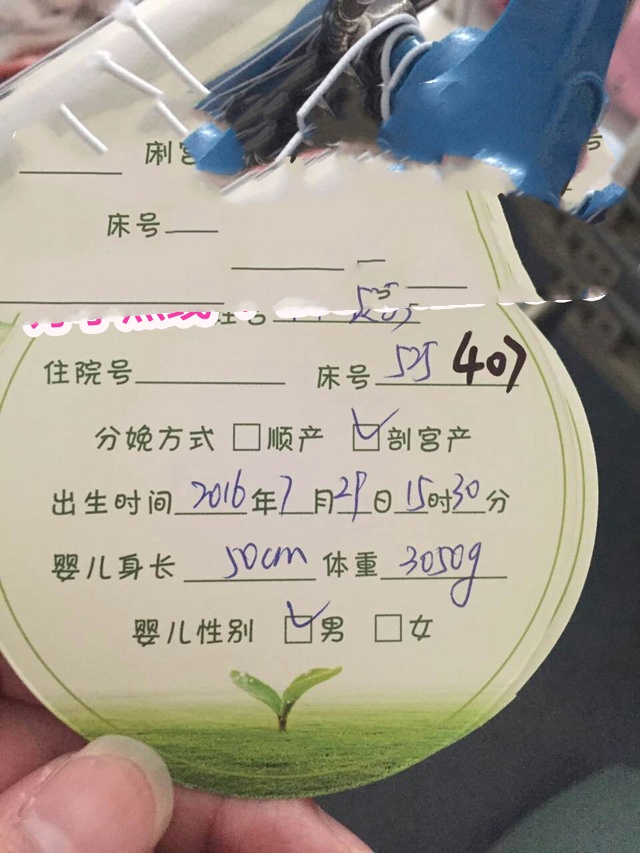 床号
住院号 床号 525 407
分娩方式 □顺产 ☑剖宫产
出生时间 2016年7月29日15时30分
婴儿身长 50cm 体重 3050g
婴儿性别 ☑男 □女